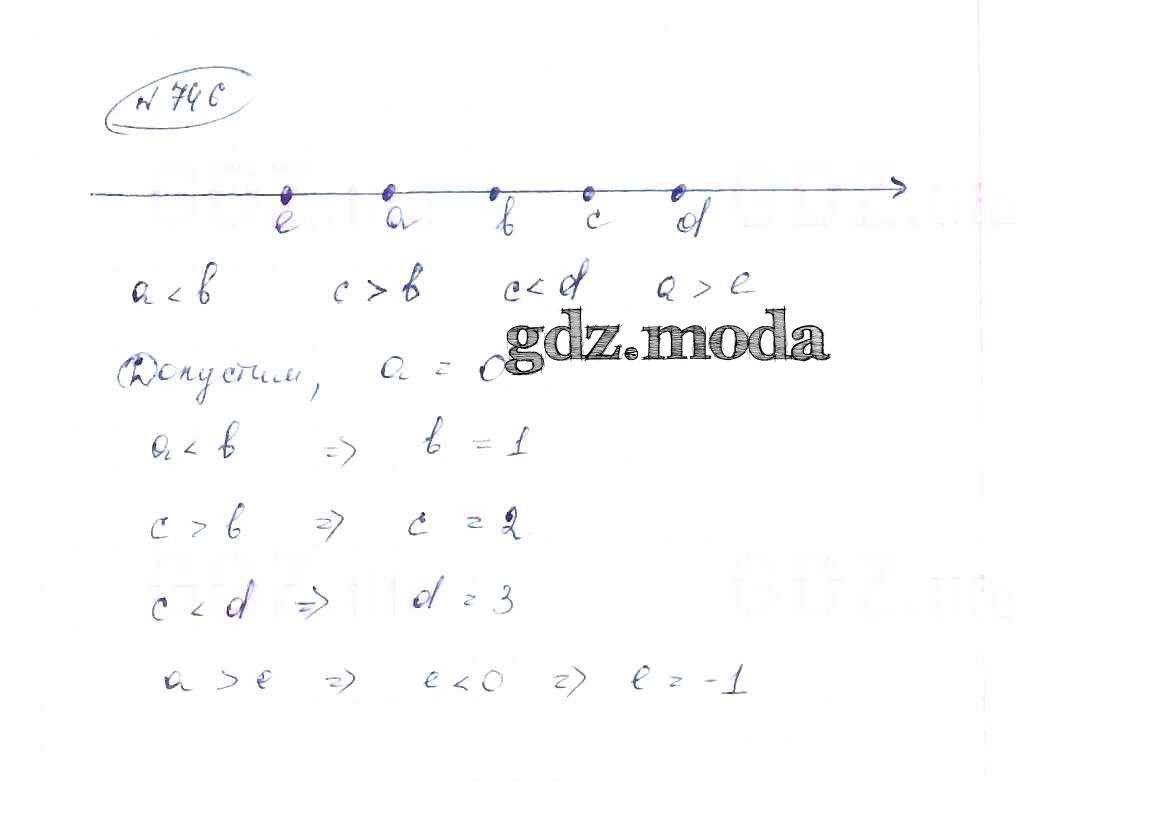 № 746
e a b c d
a < b c > b c < d a > e
gdz.moda
Допустим, a = 0
a < b => b = 1
c > b => c = 2
c < d => d = 3
a > e => e < 0 => e = -1